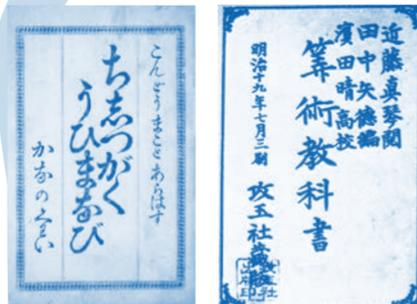 こんどうまことあらはす
ちしつがく
うひまなび
かなのくわい
近藤真琴閲
田中矢徳編
濱田晴高校
筭術教科書
明治十九年七月三刷
攻玉社蔵版